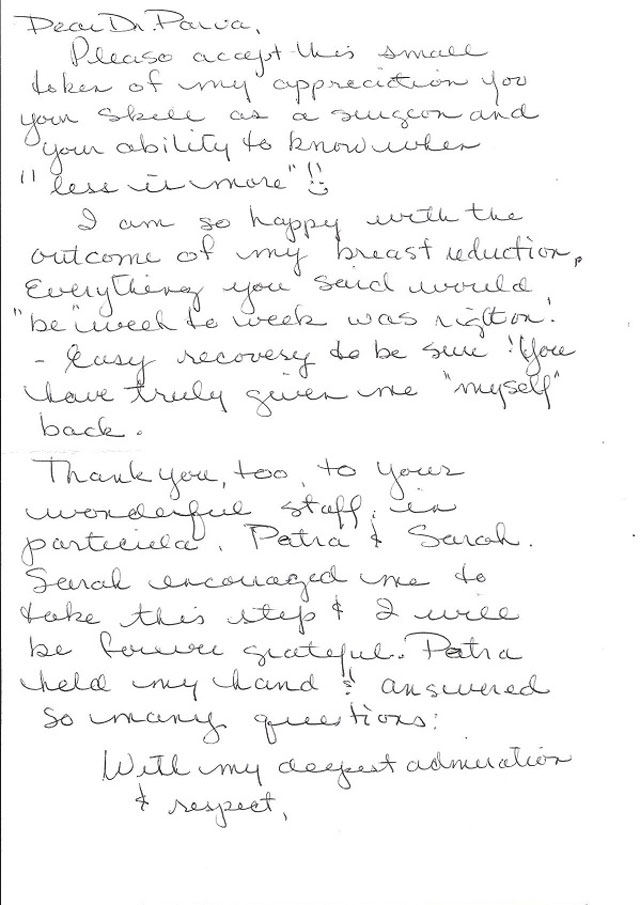 Dear Dr. Parva,
Please accept this small
token of my appreciation you
your skill as a surgeon and
your ability to know when
"less is more"!!
I am so happy with the
outcome of my breast reduction.
Everything you said would
"be" week to week was right on!
- Easy recovery to be sure! You
have truly given me "myself"
back.
Thank you, too, to your
wonderful staff, in
particular, Petra & Sarah.
Sarah encouraged me to
take this step & I will
be forever grateful. Petra
held my hand & answered
so many questions!
With my deepest admiration
& respect,